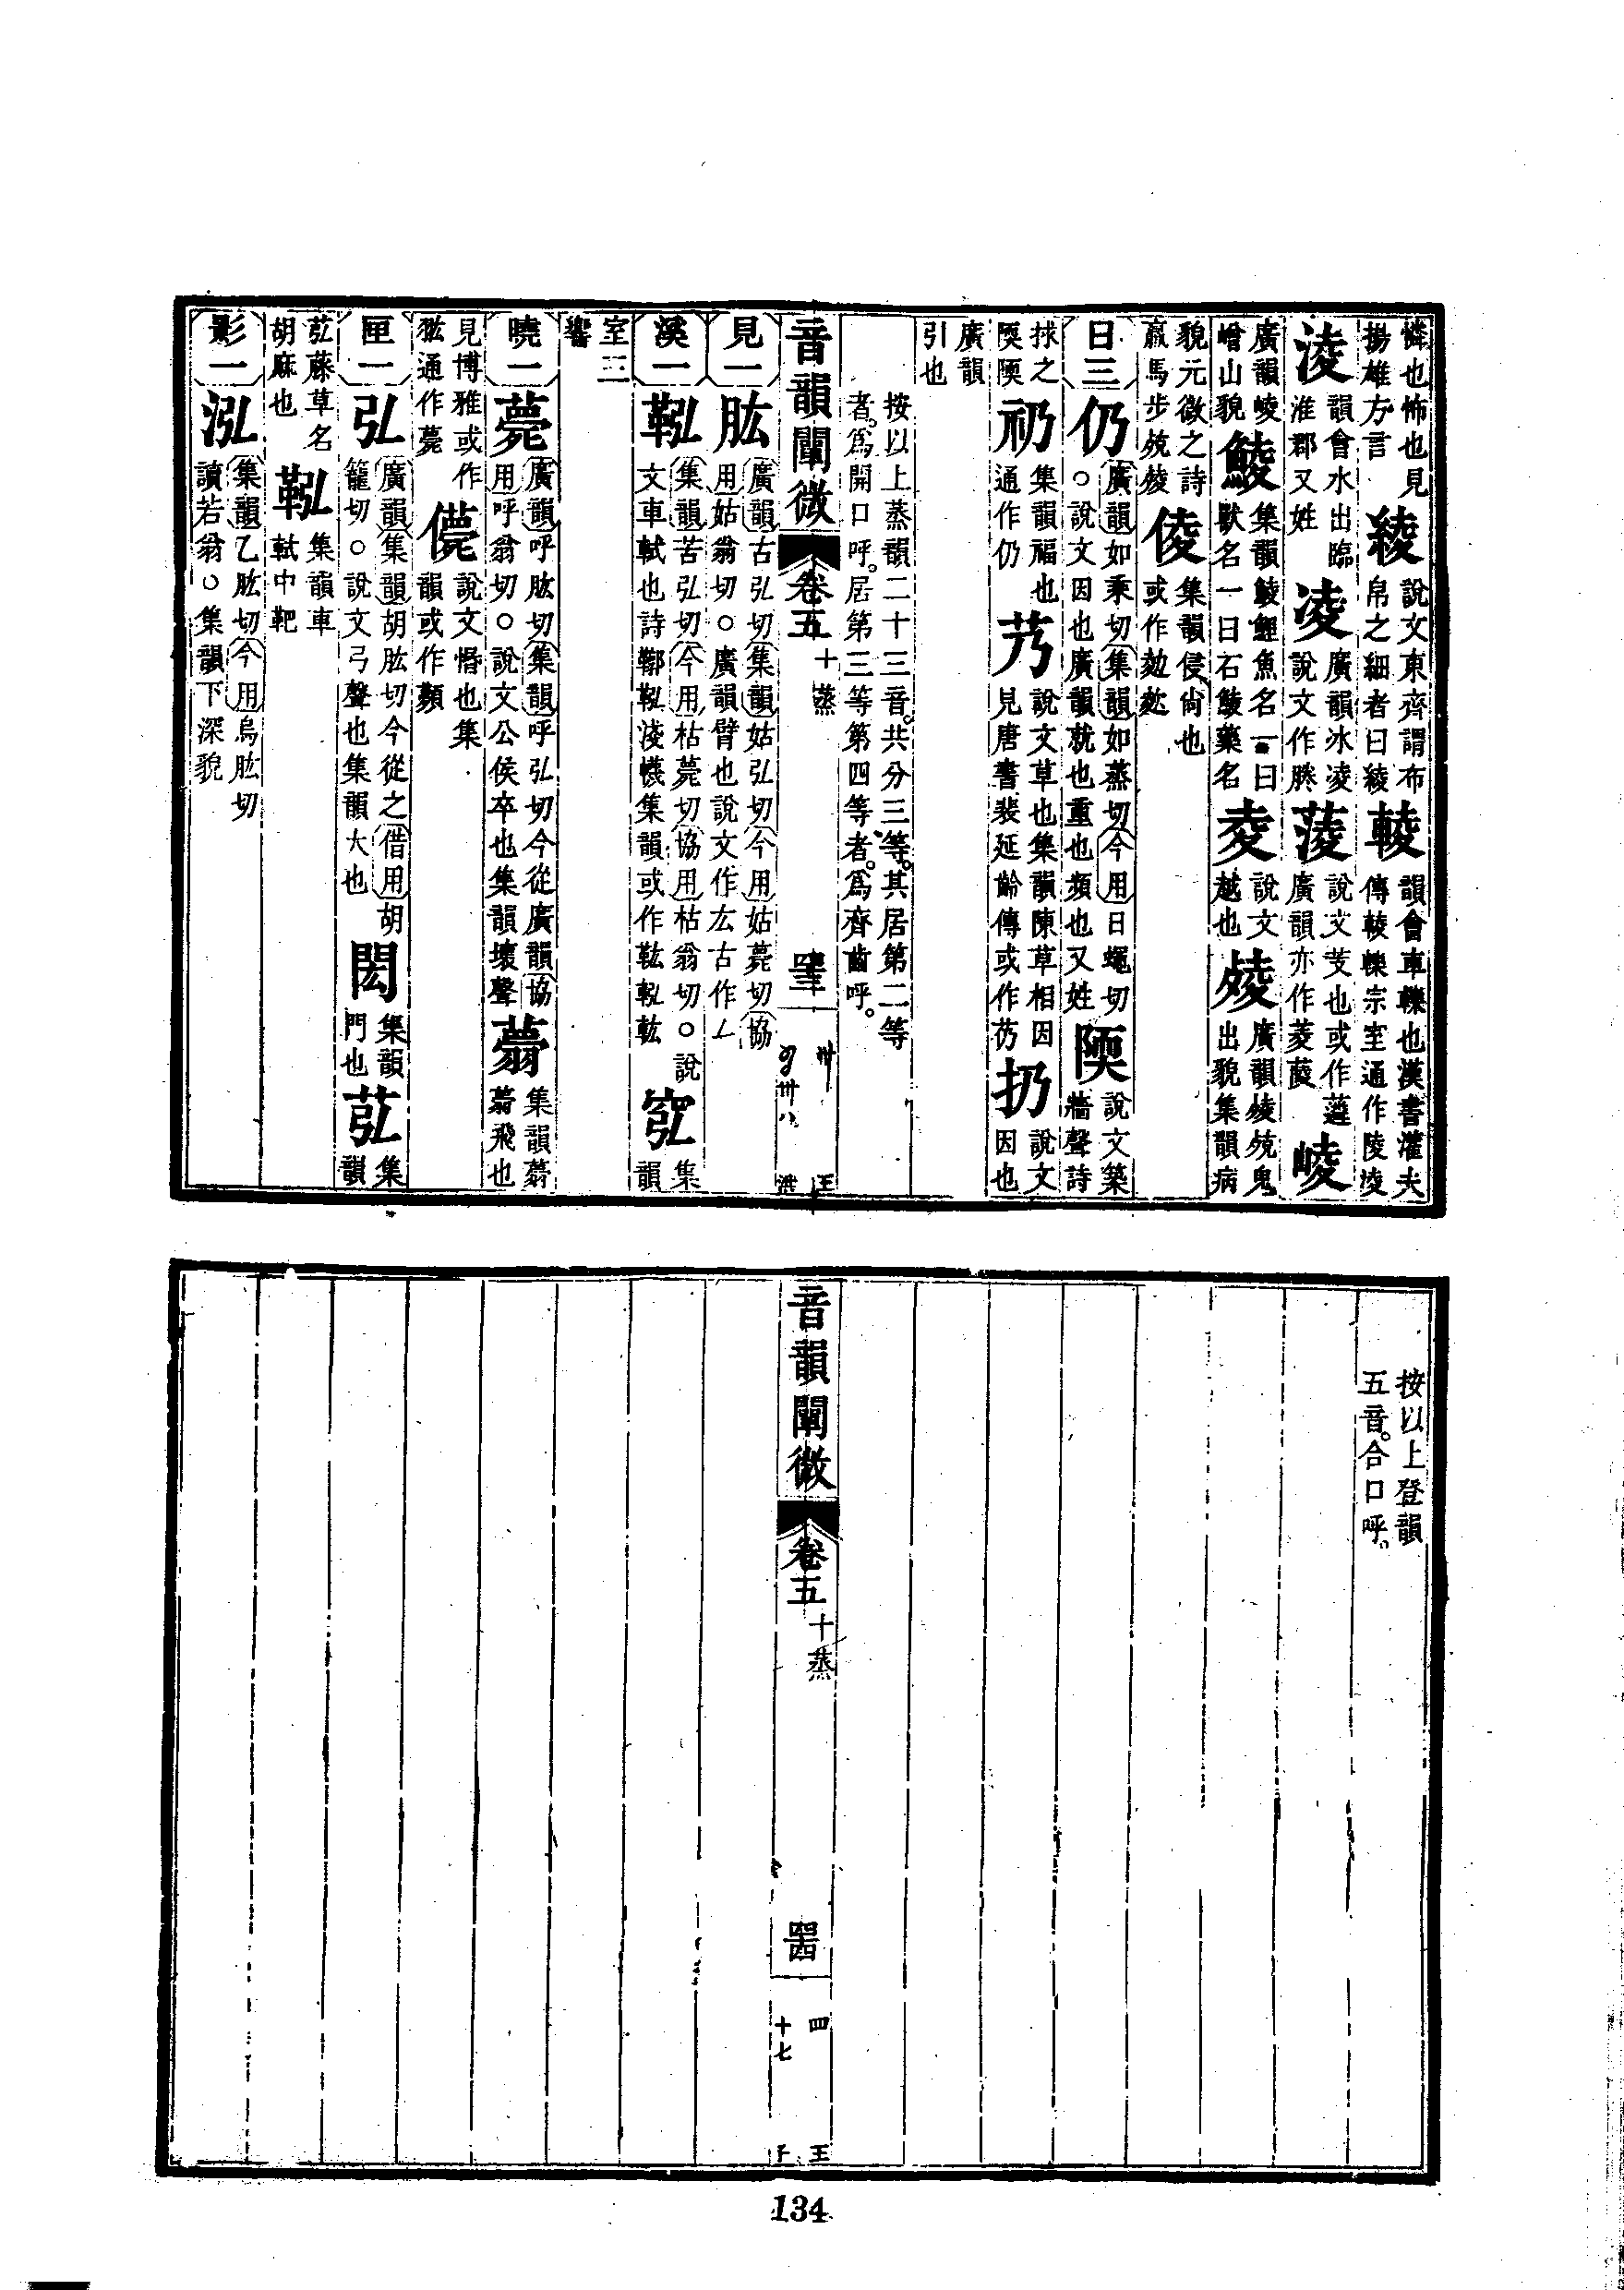 憐也怖也見揚雄方言 綾 說文東齊謂布帛之細者曰綾 輘 韻會車轢也漢書灌夫傳輘轢宗室通作陵淩
淩 韻會水出臨淮郡又姓 凌 廣韻冰凌說文作㔁 蔆 說文芰也或作䔖廣韻亦作菱䕘 崚
廣韻崚嶒山貌 鯪 集韻鯪鯉魚名一曰獸名一曰石鯪藥名 夌 說文越也 㱥 廣韻㱥殑鬼出貌集韻病
貌元微之詩羸馬步殑㱥 倰 集韻侵尙也或作
日三 仍 廣韻如乘切集韻如蒸切今用日蠅切○說文因也廣韻就也重也頻也又姓 陾 說文築牆聲詩
捄之陾陾 礽 集韻福也通作仍 艿 說文草也集韻陳草相因見唐書裴延齡傳或作芿 扔 說文因也
廣韻引也
按以上蒸韻二十三音。共分三等。其居第二等者。爲開口呼。居第三等第四等者。爲齊齒呼。
音韻闡微 卷五 十蒸 四三
見一 肱 廣韻古弘切集韻姑弘切今用姑薨切協用姑翁切○廣韻臂也說文作厷古作𠃋
溪一 鞃 集韻苦弘切今用枯薨切協用枯翁切○說文車軾也詩鞹鞃淺幭集韻或作鞃䡌 𥥈 集韻
室三響
曉一 薨 廣韻呼肱切集韻呼弘切今從廣韻協用呼翁切○說文公侯卒也集韻壞聲 薧 集韻薧薧飛也
見博雅或作翃通作薨 儚 說文惛也集韻或作顭
匣一 弘 廣韻集韻胡肱切今從之借用胡籠切○說文弓聲也集韻大也 閎 集韻門也 苰 集韻
苰藤草名胡麻也 鞃 集韻車軾中靶
影一 泓 集韻乙肱切今用烏肱切讀若翁○集韻下深貌
按以上登韻五音。合口呼。
音韻闡微 卷五 十蒸 四四
四 十七
王 子
134